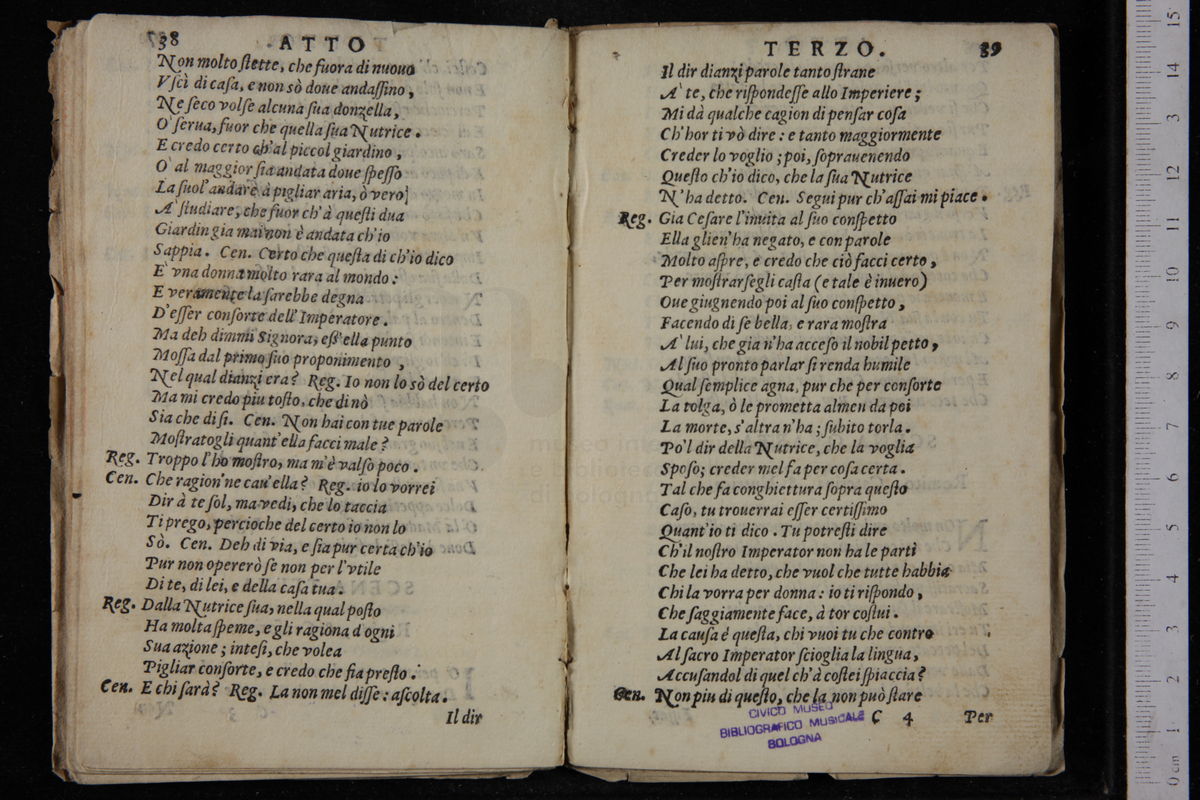 38 ATTO
Non molto ſtette, che fuora di nuouo
Vſcì di caſa, e non sò doue andaſſino,
Ne ſeco volſe alcuna ſua donzella,
O' ſerua, fuor che quella ſua Nutrice.
E credo certo ch'al piccol giardino,
O' al maggior ſia andata doue ſpeſſo
La ſuol' andare à pigliar aria, ò vero
A' ſtudiare, che fuor ch'à queſti dua
Giardin gia mai non è andata ch'io
Sappia. Cen. Certo che queſta di ch'io dico
E' vna donna molto rara al mondo:
E veramente la ſarebbe degna
D'eſſer conſorte dell' Imperatore.
Ma deh dimmi Signora, eſſ'ella punto
Moſſa dal primo ſuo proponimento,
Nel qual dianzi era? Reg. Io non lo sò del certo
Ma mi credo piu toſto, che di nò
Sia che di ſi. Cen. Non hai con tue parole
Moſtratogli quant'ella facci male?
Reg. Troppo l'ho moſtro, ma m'è valſo poco.
Cen. Che ragion'ne cau'ella? Reg. io lo vorrei
Dir à te ſol, ma vedi, che lo taccia
Ti prego, percioche del certo io non lo
Sò. Cen. Deh di via, e ſia pur certa ch'io
Pur non opererò ſe non per l'vtile
Di te, di lei, e della caſa tua.
Reg. Dalla Nutrice ſua, nella qual poſto
Ha molta ſpeme, e gli ragiona d'ogni
Sua azione; inteſi, che volea
Pigliar conſorte, e credo che fia preſto.
Cen. E chi ſarà? Reg. La non mel diſſe: aſcolta.
Il dir
TERZO. 39
Il dir dianzi parole tanto ſtrane
A' te, che riſpondeſſe allo Imperiere;
Mi dà qualche cagion di penſar coſa
Ch'hor ti vò dire: e tanto maggiormente
Creder lo voglio; poi, ſoprauenendo
Queſto ch'io dico, che la ſua Nutrice
N'ha detto. Cen. Segui pur ch'aſſai mi piace.
Reg. Gia Ceſare l'inuita al ſuo conſpetto
Ella glien'ha negato, e con parole
Molto aſpre, e credo che ciò facci certo,
Per moſtrarſegli caſta (e tale è inuero)
Oue giugnendo poi al ſuo conſpetto,
Facendo di ſe bella, e rara moſtra
A' lui, che gia n'ha acceſo il nobil petto,
Al ſuo pronto parlar ſi renda humile
Qual ſemplice agna, pur che per conſorte
La tolga, ò le prometta almen da poi
La morte, s'altra n'ha; ſubito torla.
Po'l dir della Nutrice, che la voglia
Spoſo; creder mel fa per coſa certa.
Tal che fa conghiettura ſopra queſto
Caſo, tu trouerrai eſſer certiſſimo
Quant'io ti dico. Tu potreſti dire
Ch'il noſtro Imperator non ha le parti
Che lei ha detto, che vuol che tutte habbia
Chi la vorra per donna: io ti riſpondo,
Che ſaggiamente face, à tor coſtui.
La cauſa é queſta, chi vuoi tu che contro
Al ſacro Imperator ſcioglia la lingua,
Accuſandol di quel ch'à coſtei ſpiaccia?
Cen. Non piu di queſto, che la non può ſtare
C 4 Per
CIVICO MUSEO
BIBLIOGRAFICO MUSICALE
BOLOGNA